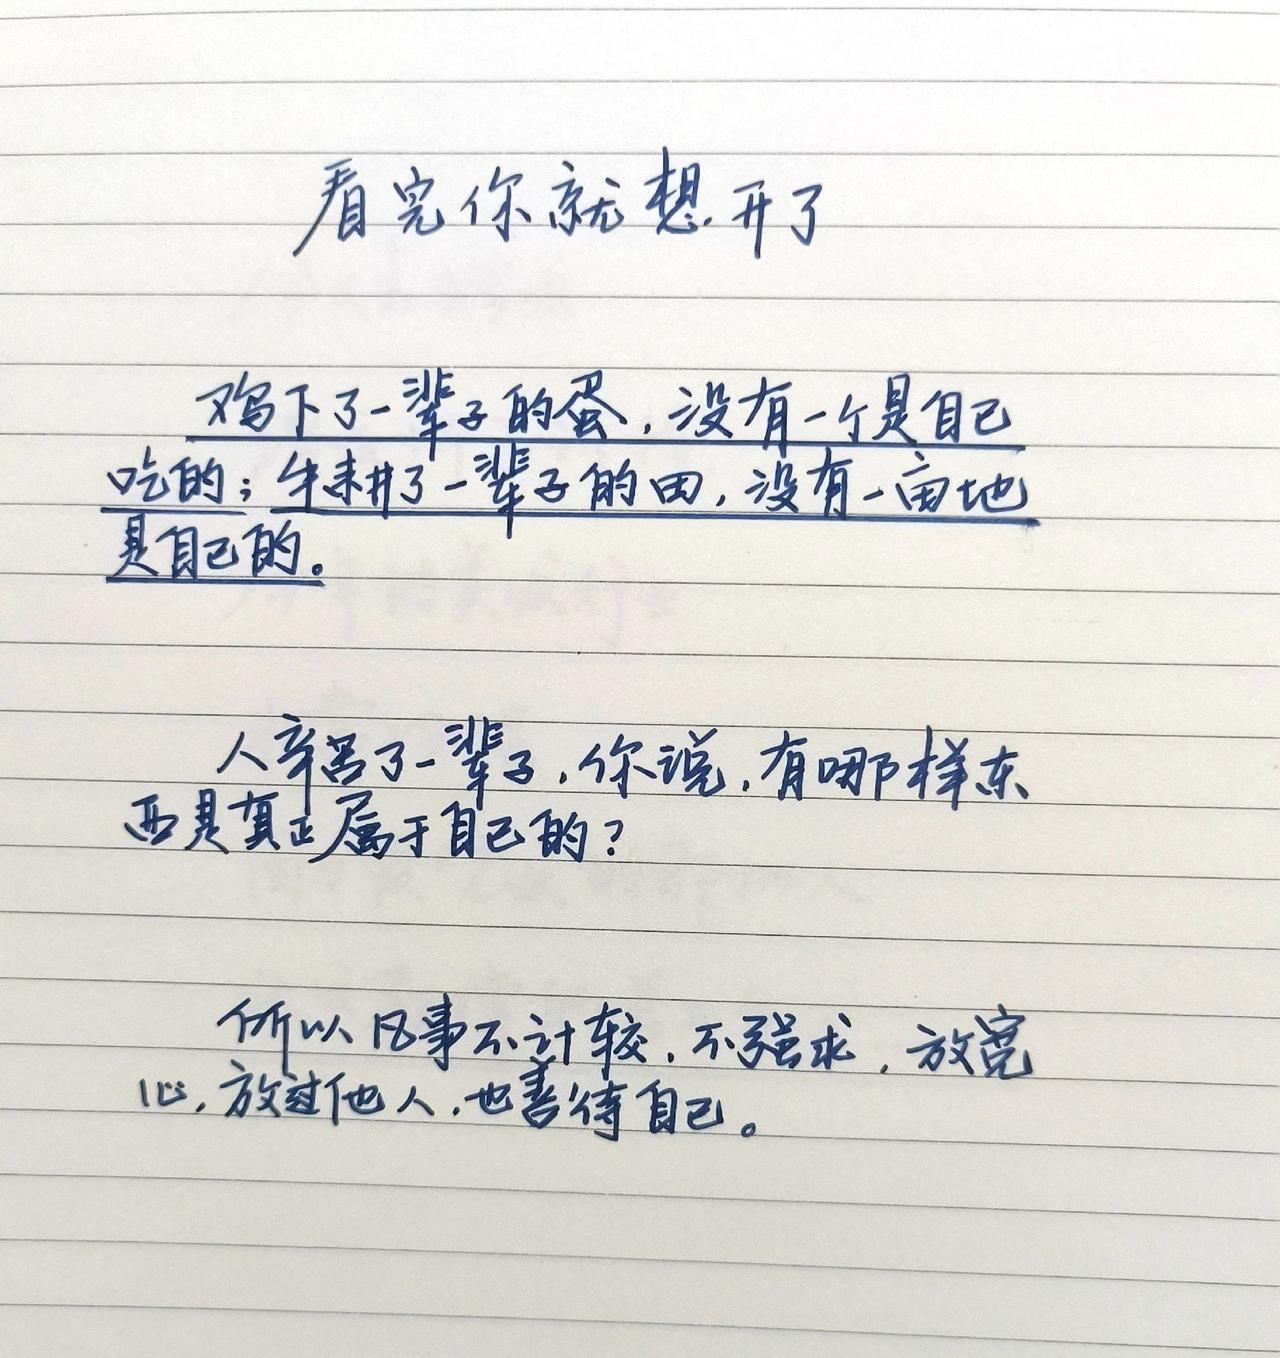 看完你就想开了
鸡下了一辈子的蛋，没有一个是自己
吃的；牛耕了一辈子的田，没有一亩地
是自己的。
人辛苦了一辈子，你说，有哪样东
西是真正属于自己的？
所以凡事不计较，不强求，放宽
心，放过他人，也善待自己。